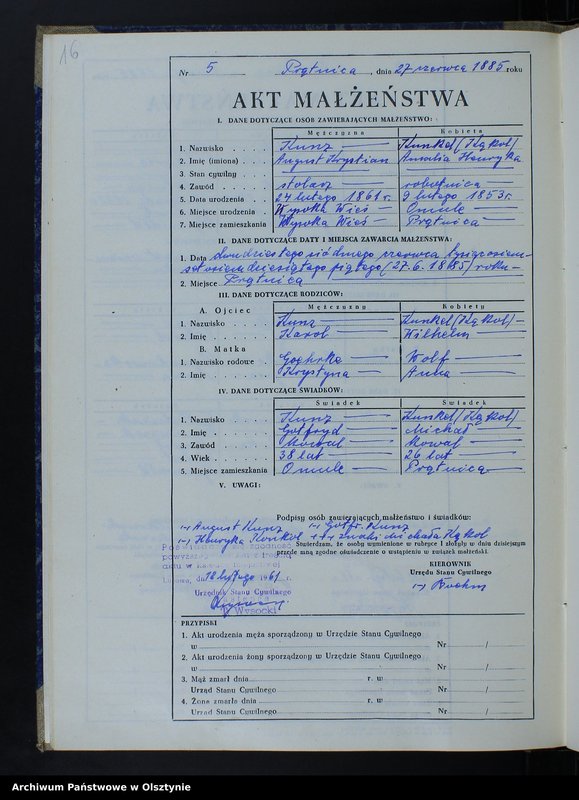 16
Nr 5 Prątnica, dnia 27 czerwca 1885 roku
AKT MAŁŻEŃSTWA
I. DANE DOTYCZĄCE OSÓB ZAWIERAJĄCYCH MAŁŻEŃSTWO:
Mężczyzna Kobieta
1. Nazwisko Kunz Kunkel (Kąkol)
2. Imię (imiona) August Krystian Amalia Henryka
3. Stan cywilny
4. Zawód stolarz robotnica
5. Data urodzenia 24 lutego 1861 r. 9 lutego 1853 r.
6. Miejsce urodzenia Wysoka Wieś Omule
7. Miejsce zamieszkania Wysoka Wieś Prątnica
II. DANE DOTYCZĄCE DATY I MIEJSCA ZAWARCIA MAŁŻEŃSTWA:
1. Data dwudziestego siódmego czerwca tysiąc osiem-
set osiemdziesiątego piątego (27.6.1885) roku
2. Miejsce Prątnica
III. DANE DOTYCZĄCE RODZICÓW:
A. Ojciec Mężczyzny Kobiety
1. Nazwisko Kunz Kunkel (Kąkol)
2. Imię Karol Wilhelm
B. Matka
1. Nazwisko rodowe Wolf
2. Imię Krystyna Anna
IV. DANE DOTYCZĄCE ŚWIADKÓW:
Świadek Świadek
1. Nazwisko Kunz Kunkel (Kąkol)
2. Imię Gotfryd Michał
3. Zawód kowal kowal
4. Wiek 38 lat 26 lat
5. Miejsce zamieszkania Omule Prątnica
V. UWAGI:
Podpisy osób zawierających małżeństwo i świadków:
(-) August Kunz (-) Gotfr. Kunz
(-) Henryka Konkol +++ znaki Michała Kąkol
Stwierdzam, że osoby wymienione w rubryce I złożyły w dniu dzisiejszym
przede mną zgodne oświadczenie o wstąpieniu w związek małżeński.
Poświadcza się zgodność
powyższego z treścią
aktu w księdze
dn. 18 lutego 1961 r.
Urzędnik Stanu Cywilnego
Wysocki
KIEROWNIK
Urzędu Stanu Cywilnego
(-) Boehm
PRZYPISKI
1. Akt urodzenia męża sporządzony w Urzędzie Stanu Cywilnego
w Nr /
2. Akt urodzenia żony sporządzony w Urzędzie Stanu Cywilnego
w Nr /
3. Mąż zmarł dnia r. w
Urząd Stanu Cywilnego Nr /
4. Żona zmarła dnia r. w
Urząd Stanu Cywilnego Nr /
Archiwum Państwowe w Olsztynie